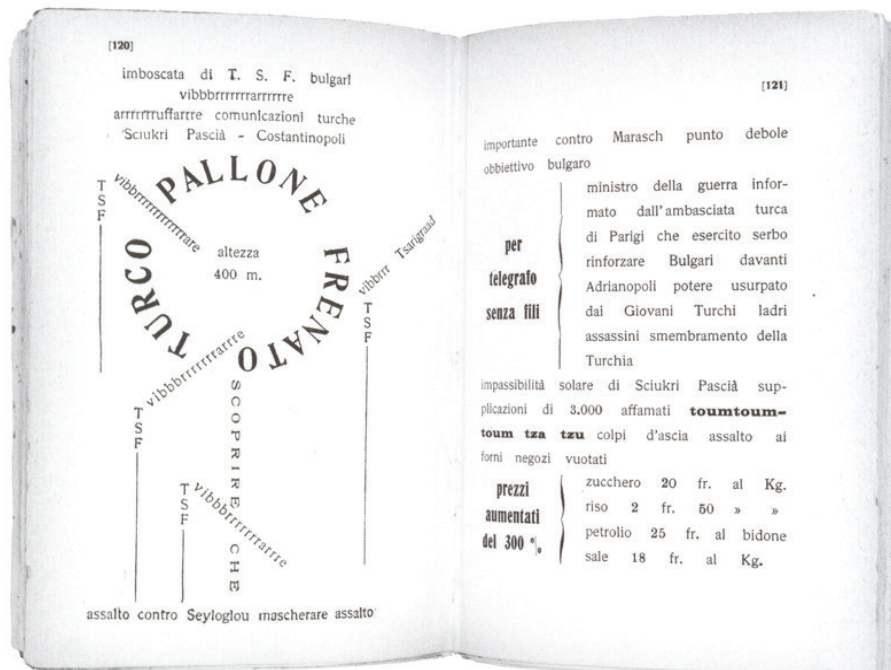 [120]
imboscata di T. S. F. bulgari
vibbbrrrrrrrarrrrrre
arrrrrrruffarrre comunicazioni turche
Sciukri Pascià - Costantinopoli
PALLONE FRENATO TURCO
altezza
400 m.
TSF
vibbrrrrrrrrrrrrrare
TSF
vibbrrr Tsarigraad
TSF
vibbbrrrrrrrarrre
TSF
vibbbrrrrrrrarrre
SCOPRIRE CHE
assalto contro Seyloglou mascherare assalto
[121]
importante contro Marasch punto debole
obbiettivo bulgaro
per
telegrafo
senza fili
ministro della guerra infor-
mato dall'ambasciata turca
di Parigi che esercito serbo
rinforzare Bulgari davanti
Adrianopoli potere usurpato
dai Giovani Turchi ladri
assassini smembramento della
Turchia
impassibilità solare di Sciukri Pascià sup-
plicazioni di 3.000 affamati toumtoum-
toum tza tzu colpi d'ascia assalto ai
forni negozi vuotati
prezzi
aumentati
del 300 %
zucchero 20 fr. al Kg.
riso 2 fr. 50 » »
petrolio 25 fr. al bidone
sale 18 fr. al Kg.